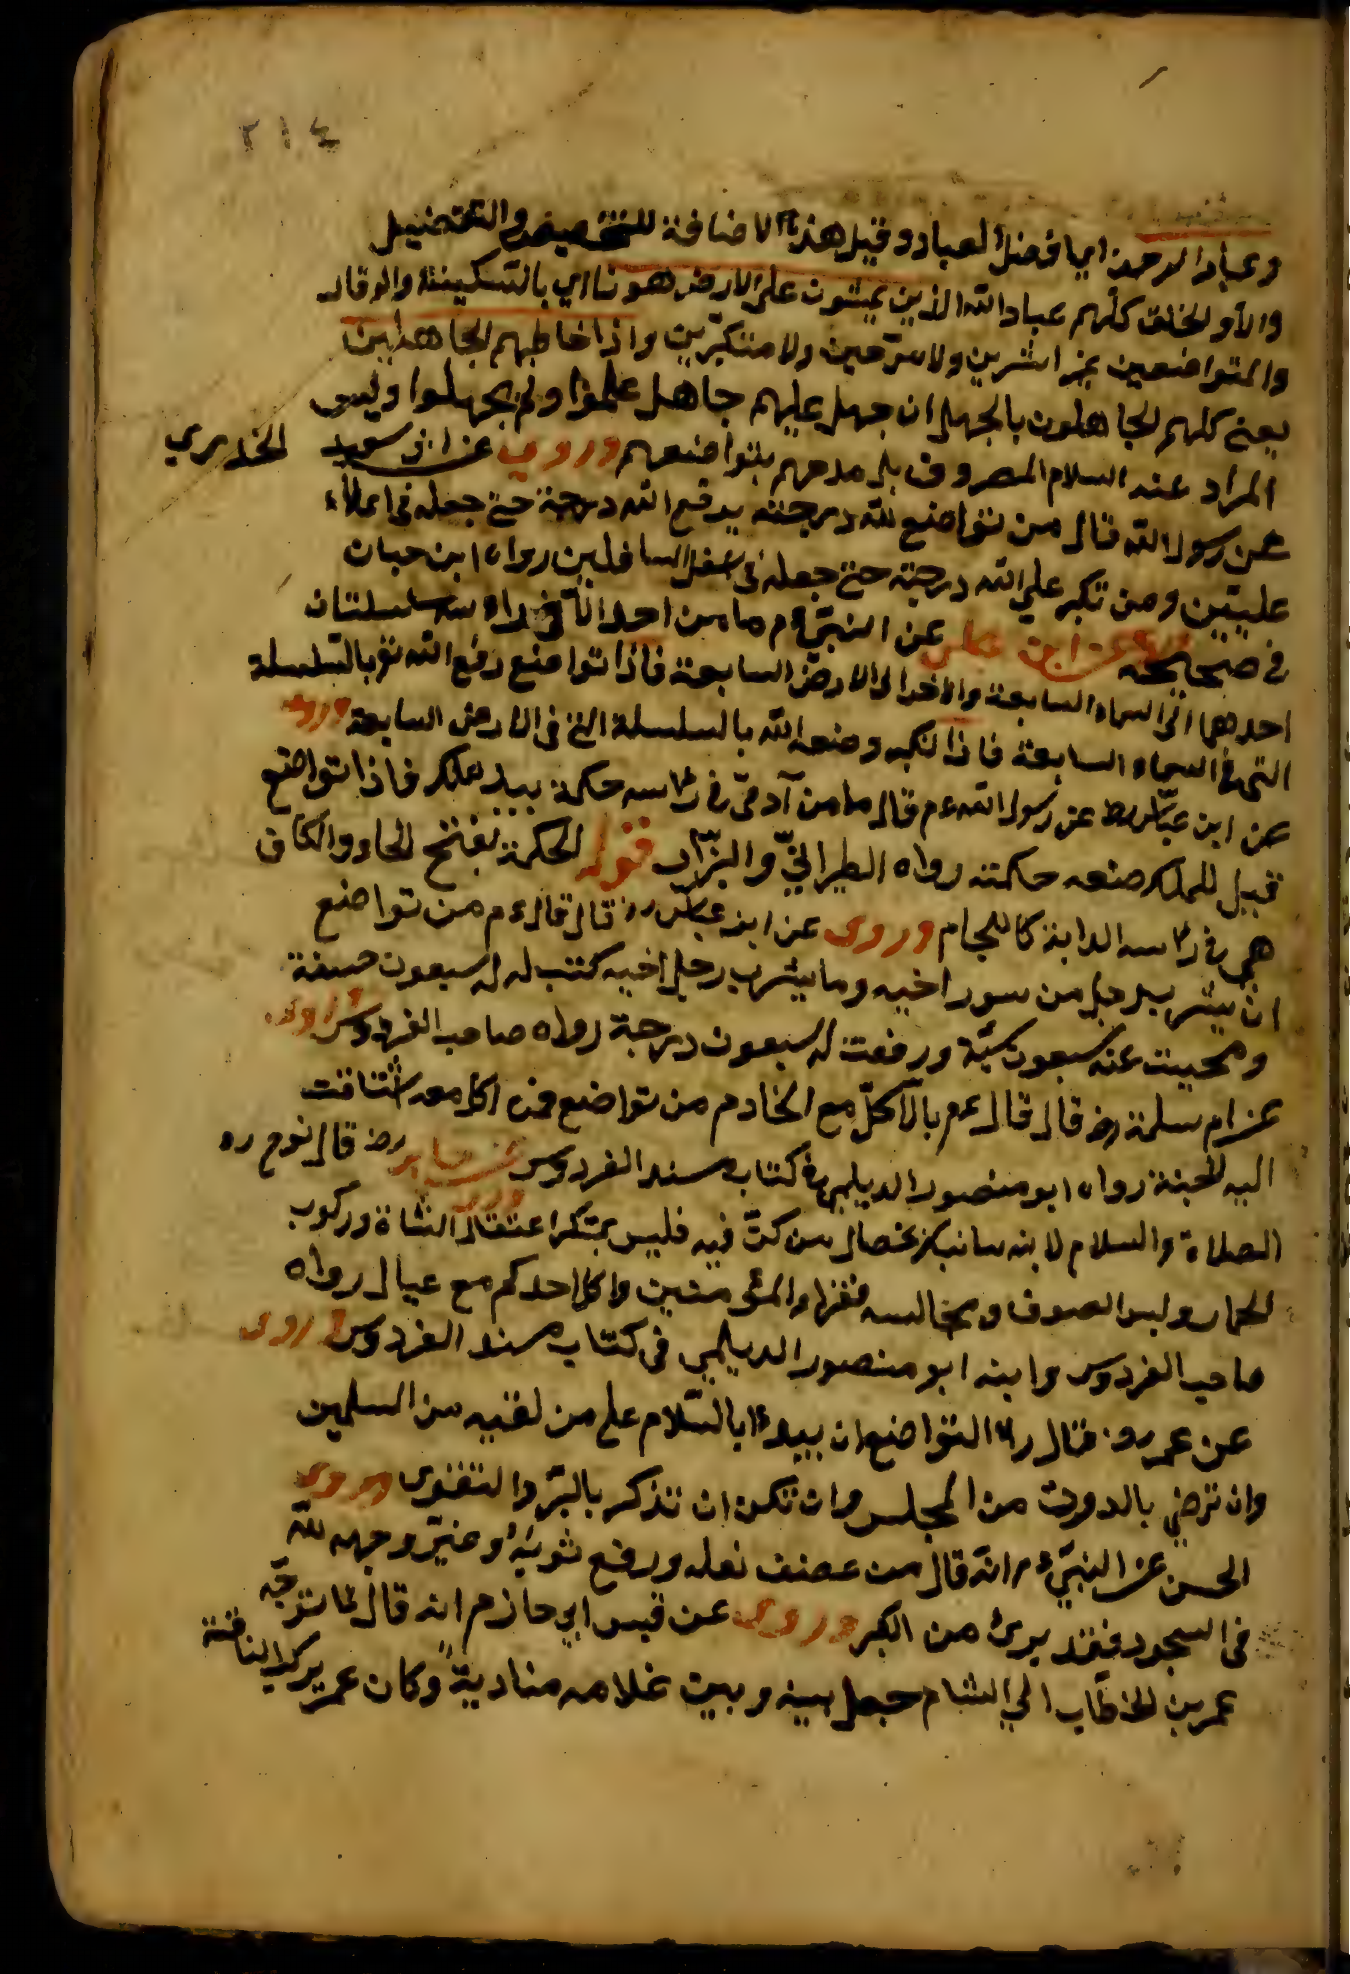 ٢١٤
وعباد الرحمن اي افضل العباد وقيل هذه الاضافة للتخصيص والتفضيل
والا والخلق كلهم عباد الله الذين يمشون على الارض هونا اي بالسكينة والوقار
والمتواضعين غير اشرين ولا مرحين ولا متكبرين واذا خاطبهم الجاهلين
يعني كلهم الجاهلون بالجهل ان جهل عليهم جاهل علموا ولم يجهلوا وليس
المراد عنه السلام المعروف بل مدحهم بتواضعهم وروي عن ابى سعيد الخدري
عن رسول الله قال من تواضع لله درجته يرفع الله درجة حتى جعله في اعلاء
عليين ومن تكبر على الله درجة حتى جعله في اسفل السافلين رواه ابن حبان
في صحيحه وروى عن ابن عباس عن النبي ءم ما من احد الا في راسه سلسلتان
احدهما الى السماء السابعة والاخرا الى الارض السابعة فاذا تواضع رفع الله تع بالسلسلة
التى في السماء السابعة فاذا تكبر وضعه الله بالسلسلة التي في الارض السابعة وروى
عن ابن عباس رض عن رسول الله ءم قال ما من آدمي في راسه حكمة بيد ملك فاذا تواضع
قيل للملك ضعه حكمته رواه الطبراني والبزار قوله الحكمة بفتح الحاء والكاف
هى في راسه الدابة كاللجام وروى عن ابن عباس رض قال قال ءم من تواضع
ان يشرب رجل من سور اخيه وما يشرب رجل اخيه كتب له له سبعون حسنة
ومحيت عنه سبعون سيئة ورفعت له سبعون درجة رواه صاحب الفردوس وروى
عن ام سلمة رض قال قال ءم بالاكل مع الخادم من تواضع فمن اكل معه اشتاقت
اليه الجنة رواه ابو منصور الديلمى في كتاب مسند الفردوس وروى عن جابر رض قال نوح ءه
الصلاة والسلام لابنه سانبكر بخصال من كن فيه فليس بمتكبر اعتقال الشاة وركوب
الحمار ولبس الصوف ومجالسه فقراء المؤمنين واكل احدكم مع عيال رواه
صاحب الفردوس وابنه ابو منصور الديلمي في كتاب مسند الفردوس وروى
عن عمر رض قال راس التواضع ان يبدء بالسلام على من لقيه من المسلمين
وان ترضى بالدون من المجلس وان تكره ان تذكر بالبر والتقوى وروى
الحسن عن النبي ءم انه قال من خصف نعله ورقع ثوبه وعفر وجهه لله
في السجود فقد برئ من الكبر وروى عن قيس ابي حازم انه قال لما توجه
عمر بن الخطاب الي الشام جعل بينه وبين غلامه منادية وكان عمر يركب الناقة